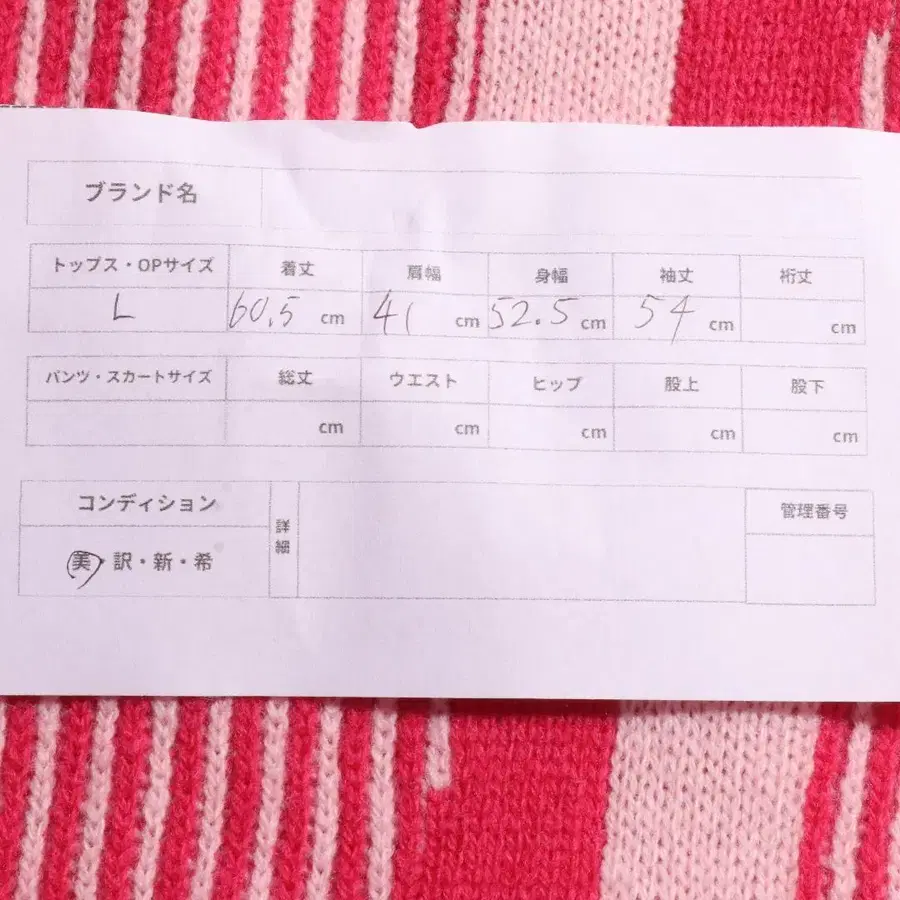 ブランド名
トップス・OPサイズ 着丈 肩幅 身幅 袖丈 裄丈
L 60.5 cm 41 cm 52.5 cm 54 cm cm
パンツ・スカートサイズ 総丈 ウエスト ヒップ 股上 股下
cm cm cm cm cm
コンディション 詳細 管理番号
美・訳・新・希